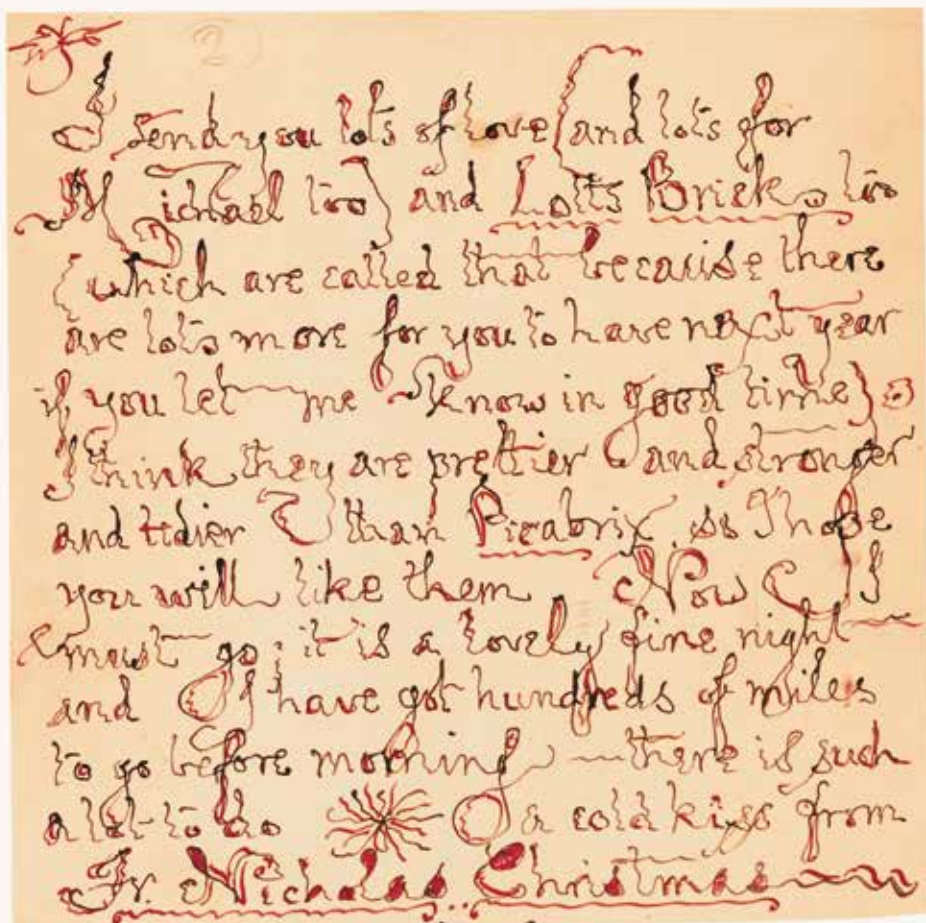 2
I send you lots of love (and lots for
Michael too) and Lotts Bricks too
(which are called that because there
are lots more for you to have next year
if you let me know in good time).
I think they are prettier and stronger
and tidier than Picabrix. so I hope
you will like them Now I
must go: it is a lovely fine night
and I have got hundreds of miles
to go before morning — there is such
a lot to do a cold kiss from
Fr. Nicholas Christmas